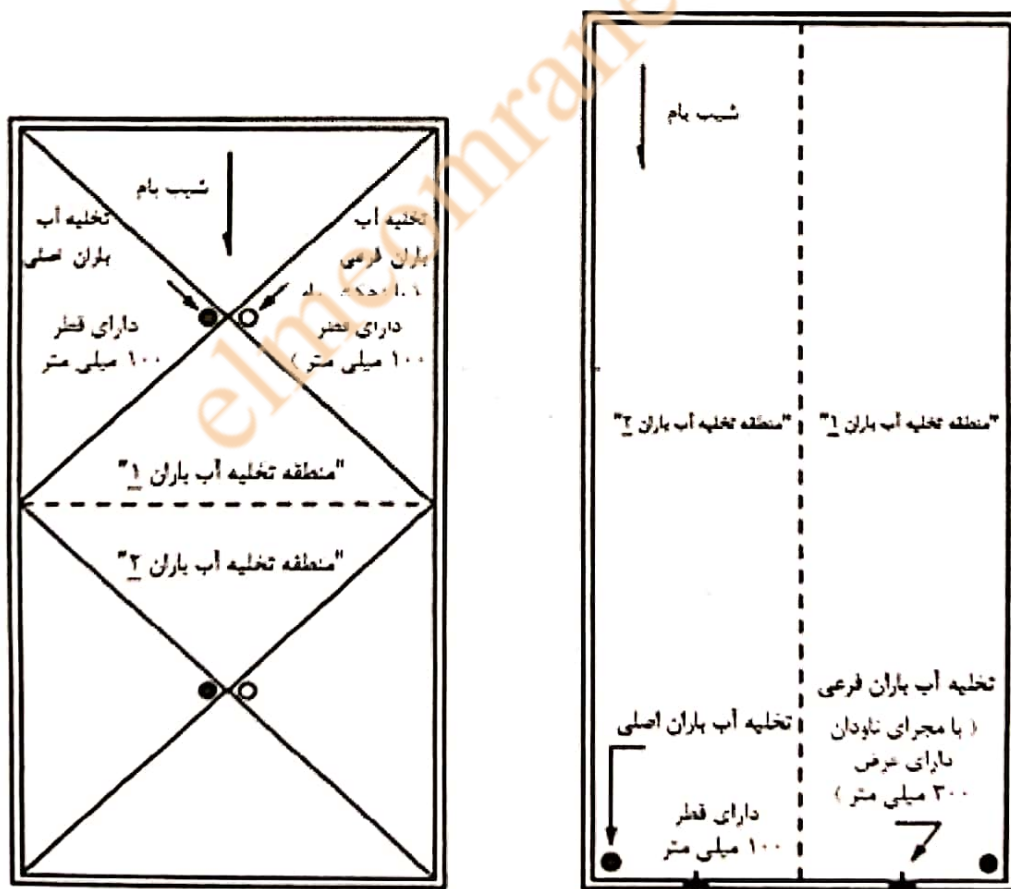 شیب بام
تخلیه آب
باران اصلی
دارای قطر
۱۰۰ میلی متر
تخلیه آب
باران فرعی
دارای قطر
۱۰۰ میلی متر )
"منطقه تخلیه آب باران ۱"
"منطقه تخلیه آب باران ۲"
شیب بام
"منطقه تخلیه آب باران ۲"
"منطقه تخلیه آب باران ۱"
تخلیه آب باران اصلی
دارای قطر
۱۰۰ میلی متر
تخلیه آب باران فرعی
( با مجرای ناودان
دارای عرض
۳۰۰ میلی متر )
elmeomrane